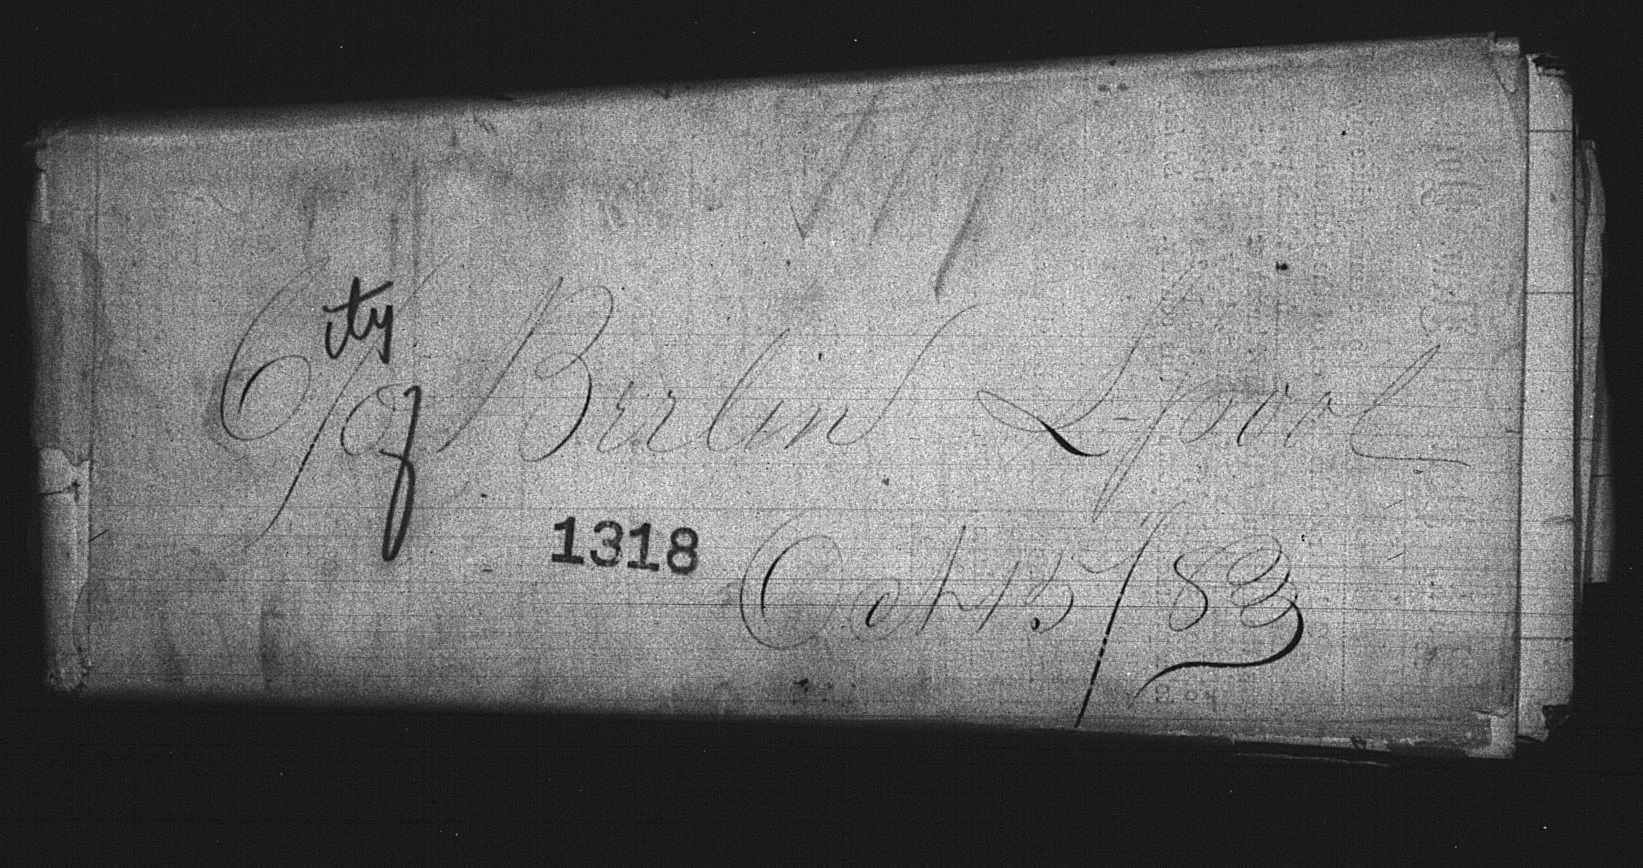 City of Berlin L-pool
1318
Oct 15/83